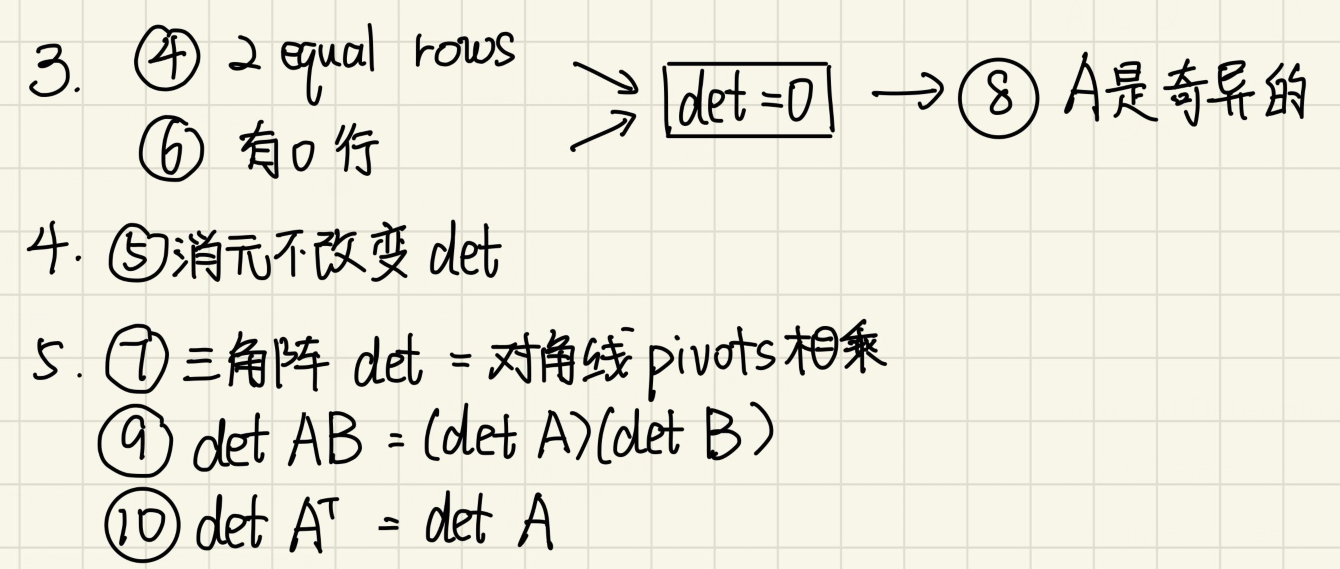 3. ④ 2 equal rows
⑥ 有0行
det=0 → ⑧ A是奇异的
4. ⑤消元不改变 det
5. ⑦三角阵 det = 对角线 pivots相乘
⑨ det AB = (det A)(det B)
⑩ det Aᵀ = det A